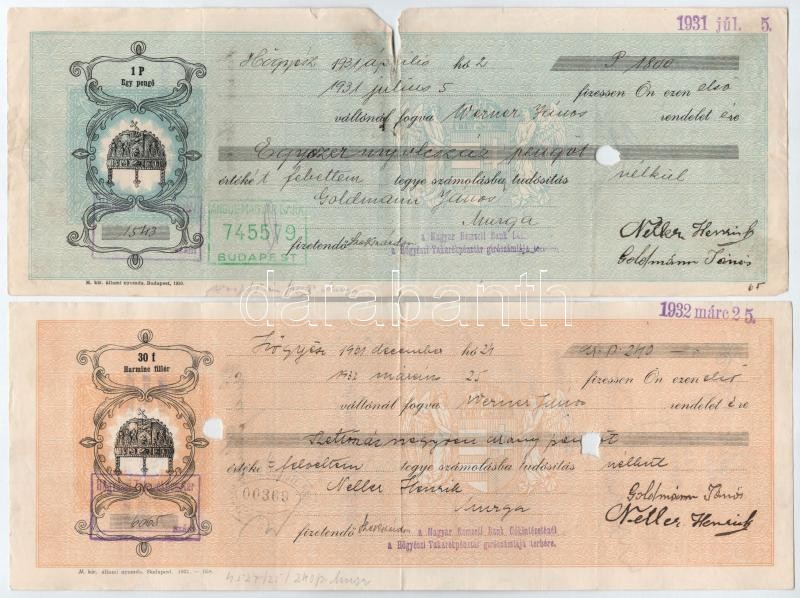 1931 júl. 5.
1 P
Egy pengő
Hőgyész 1931 április hó 2 P 1800
1931 július 5 fizessen Ön ezen első
váltónál fogva Werner János rendelet ére
Egyezer nyolcszáz pengőt
értéké t felvettem tegye számolásba tudósítás nélkül
Goldmann János
Murga
1543
745579
BUDAPEST
fizetendő Szekszárdon
a Magyar Nemzeti Bank
a Hőgyészi Takarékpénztár girószámlája
Neller Henrik
Goldmann János
65
M. kir. állami nyomda, Budapest, 1930.
databanth
1932 márc 25.
30 f
Harminc fillér
Hőgyész 1931 december hó 21 P 240
1932 március 25 fizessen Ön ezen első
váltónál fogva Werner János rendelet ére
negyven arany pengőt
értéke felvettem tegye számolásba tudósítás nélkül
00369
Neller Henrik
Murga
6065
fizetendő Szekszárdon
a Magyar Nemzeti Bank fiókintézeténél
a Hőgyészi Takarékpénztár girószámlája terhére.
Goldmann János
Neller Henrik
M. kir. állami nyomda. Budapest, 1931.